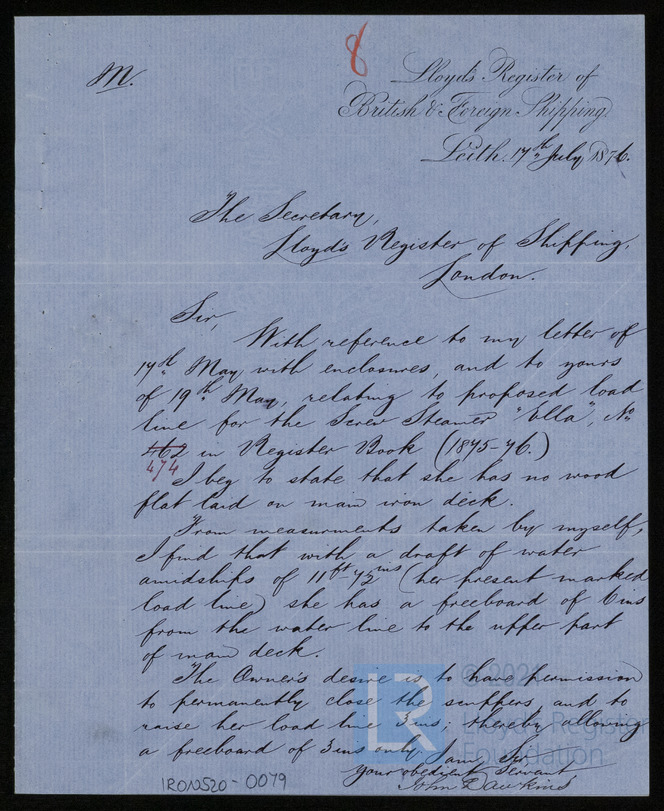 8
M.
Lloyd's Register of
British & Foreign Shipping.
Leith. 17th July 1876.
The Secretary,
Lloyd's Register of Shipping,
London.
Sir,
With reference to my letter of
17th May with enclosures, and to yours
of 19th May, relating to proposed load
line for the Screw Steamer "Ella", No
462 in Register Book (1875-76.)
474
I beg to state that she has no wood
flat laid on main iron deck.
From measurments taken by myself,
I find that with a draft of water
amidships of 11ft-7½ins (her present marked
load line) she has a freeboard of 6ins
from the water line to the upper part
of main deck.
The Owner's desire is to have permission
to permanently close the scuppers, and to
raise her load line 3ins; thereby allowing
a freeboard of 3ins only. I am Sir
your obedient Servant,
John
IRON520-0079
© 2021
Lloyd's Register
Foundation
LR